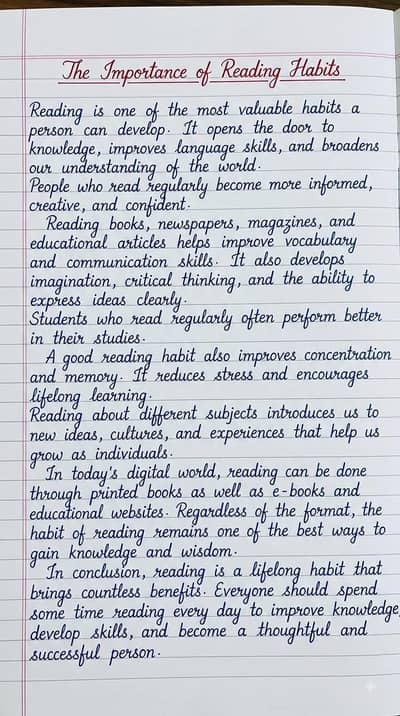 The Importance of Reading Habits
Reading is one of the most valuable habits a
person can develop. It opens the door to
knowledge, improves language skills, and broadens
our understanding of the world.
People who read regularly become more informed,
creative, and confident.
Reading books, newspapers, magazines, and
educational articles helps improve vocabulary
and communication skills. It also develops
imagination, critical thinking, and the ability to
express ideas clearly.
Students who read regularly often perform better
in their studies.
A good reading habit also improves concentration
and memory. It reduces stress and encourages
lifelong learning.
Reading about different subjects introduces us to
new ideas, cultures, and experiences that help us
grow as individuals.
In today's digital world, reading can be done
through printed books as well as e-books and
educational websites. Regardless of the format, the
habit of reading remains one of the best ways to
gain knowledge and wisdom.
In conclusion, reading is a lifelong habit that
brings countless benefits. Everyone should spend
some time reading every day to improve knowledge,
develop skills, and become a thoughtful and
successful person.